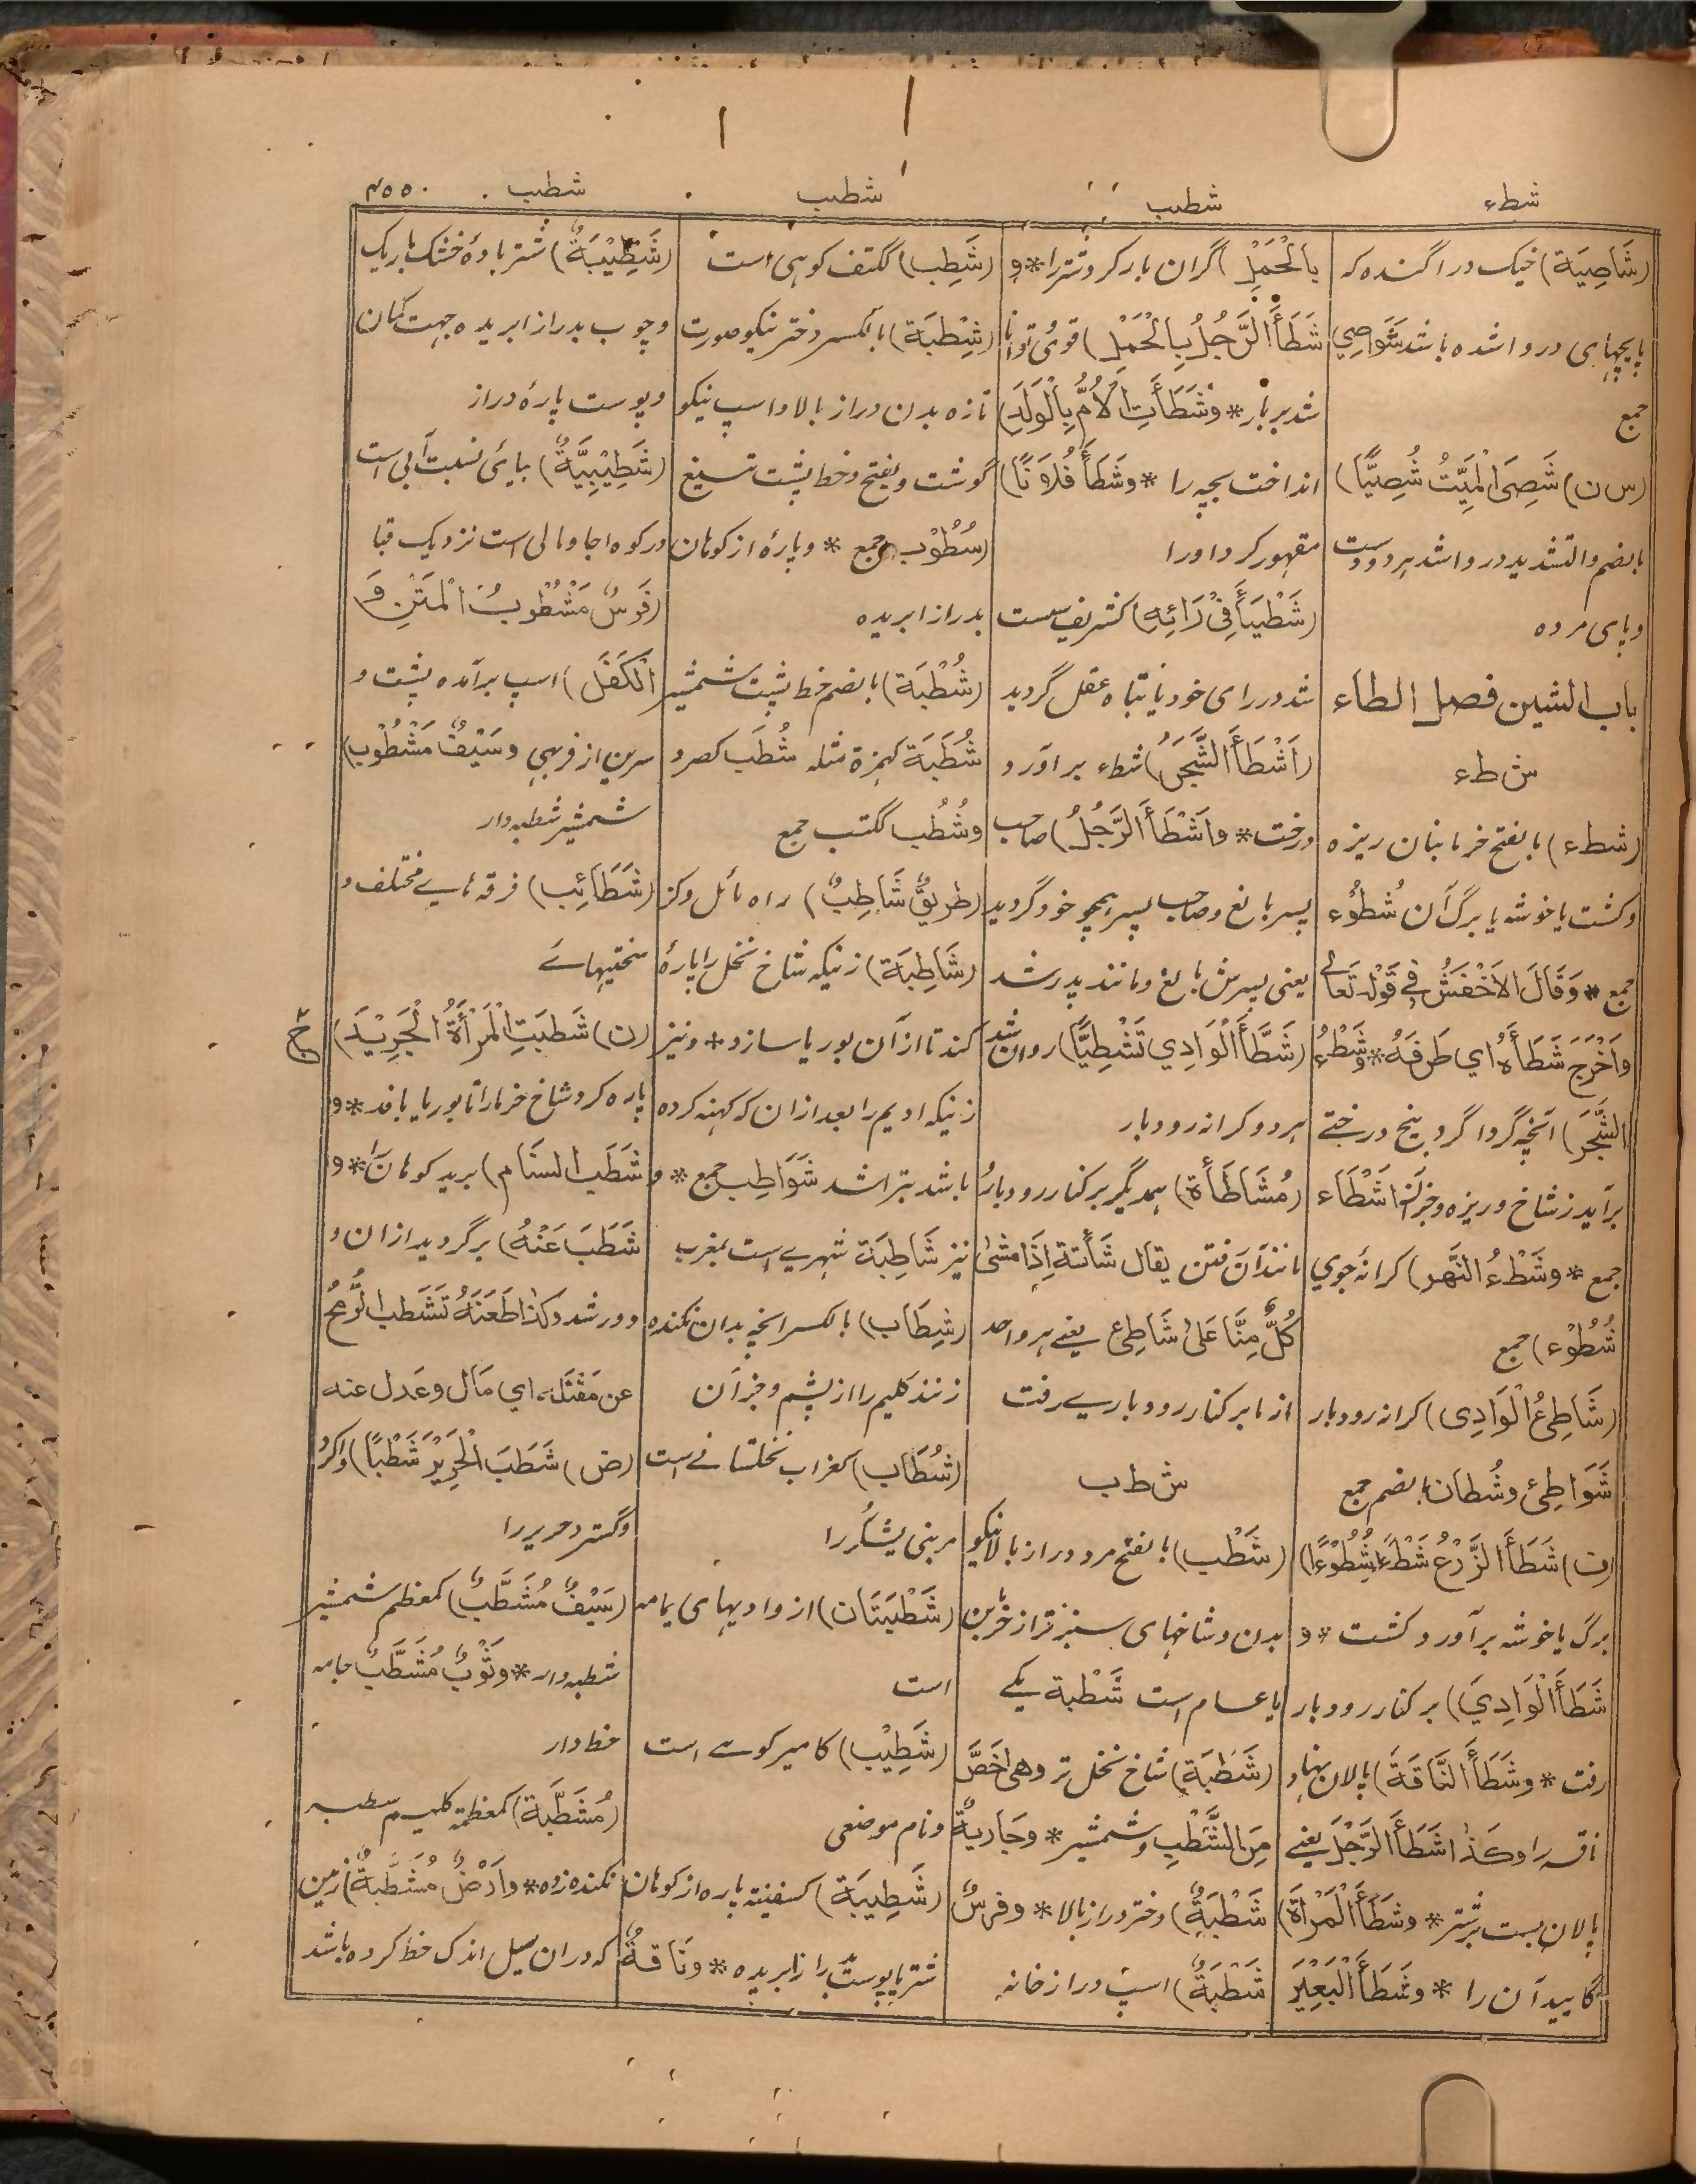 شطء
شطب
شطب
شطب
۴۵۵۰
(شَاصِيَة) خیک در اگنده که
پایچهای در وا شده باشد شَوَاصِي
جمع
(س ن) شَصِيَ الْمَيِّتُ شُصِيًّا)
بالضم والتشدید در وا شد هر دو دست
وپای مرده
باب الشین فصل الطاء
ش طء
(شطء) بالفتح خرمابنان ریزه
وکشت یا خوشه یا برگ آن شُطُوْء
جمع * وَقَالَ الاَخْفَشُ فِي قَوْلِه تَعَالٰے
وَاَخْرَجَ شَطَأَهُ اي طَرَفَهُ * وشَطْءُ
الشَّجَر) آنچه گرداگرد بیخ درختے
برآید از شاخ وریزه وجز آن اَشْطَاء
جمع * وشَطْءُ النَّهر) کرانهٔ جوي
شُطُوْء) جمع
(شَاطِئُ الْوَادِی) کرانه رودبار
شَوَاطِئ وشُطان بالضم جمع
(ف) شَطَأَ الزَّرْعُ شَطْءً اشُطُوْءًا)
برگ یا خوشه برآورد کشت * و
شَطَأَ الْوَادِيَ) بر کنار رودبار
رفت * وشَطَأَ النَّاقَةَ) پالان نهاد
ناقه را وکذا شَطَأَ الرَّجُلَ یعنے
پالان بست بر شتر * وشَطَأَ الْمَرْأَةَ)
گایید آن را * وشَطَأَ الْبَعِيْرَ
بِالْحَمْلِ) گران بار کرد شتر را * و
شَطَأَ الرَّجُلُ بِالْحَمْلِ) قوی وتوانا
شد بر بار * وشَطَأَتِ الاُمُّ بِالْوَلَدِ)
انداخت بچه را * وشَطَأَ فُلَانًا)
مقهور کرد اورا
(شَطْيَأَ فِيْ رَائِهِ) کشریف سست
شد در رای خود یا تباه عقل گردید
(اَشْطَأَ الشَّجَرُ) شطء برآورد
درخت * واَشْطَأَ الرَّجُلُ) صاحب
پسر بالغ وصاحب پسر همچو خود گردید
یعنی پسرش بالغ ومانند پدر شد
(شَطَّأَ الْوَادِي تَشْطِيًّا) روان شد
هر دو کرانه رودبار
(مُشَاطَأَة) همدیگر بر کنار رودبار
مانند آن رفتن یقال شَأْتَهُ اِذَا مَشٰى
كُلٌّ مِنَّا عَلٰى شَاطِئٍ یعنے هر واحد
از ما بر کنار رودبارے رفت
ش ط ب
(شَطْب) بالفتح مرد دراز بالا نیکو
بدن وشاخهای سبز تر از خرما بن
یا عام است شَطْبة یکے
(شَطْبَة) شاخ نخل تر وهی اَخَصّ
مِنَ الشَّطْبِ وشمشیر * وجَارِيَةٌ
شَطْبَةٌ) دختر دراز بالا * وفرسٌ
شَطْبَةٌ) اسپ دراز خانه
(شَطِب) ککتف کوهی است
(شِطْبَة) بالکسر دختر نیکو صورت
تازه بدن دراز بالا واسپ نیکو
گوشت ویفتح وخط پشت تیغ
شُطُوْب جمع * وپارهٔ از کوهان
بدراز ابریده
(شُطْبَة) بالضم خط پشت شمشیر
شُطَبَة کهمزة مثله شُطَب کصرد
وشُطُب ککتب جمع
(طَرِيْقٌ شَاطِبٌ) راه مائل وکژ
(شَاطِبَة) زنیکه شاخ نخل را پارهٔ
کند تا از آن بوریا سازد * ونیز
زنیکه ادیم را بعد ازان که کهنه کرده
باشد بتراشد شَوَاطِب جمع * و
نیز شَاطِبَة شهرے است بمغرب
(شِطَاب) بالکسر آنچه بدان نکنده
زنند کلیم را از پشم وجز آن
(شُطَاب) کغراب نخلستانے است
مر بنی یشکر را
(شَطْبَتَان) از وادیهای یمامه
است
(شَطِيْب) کامیر کوهے است
ونام موضعی
(شَطِيبَة) کسفینة پاره از کوهان
شتر یا پوست بدراز ابریده * ونَاقَةٌ
(شَطِيْبَةٌ) شتر مادهٔ خشک باریک
وچوب بدراز ابریده جهت کمان
وپوست پارهٔ دراز
(شَطِيْبِيَّةٌ) بیائ نسبت آبی است
در کوه اجا وما لی است نزدیک قبا
(فَرَسٌ مَشْطُوبُ الْمَتْنِ وَ
الْكَفَل) اسپ برآمده پشت و
سرین از فربهی وسَيْفٌ مَشْطُوب)
شمشیر شطبه دار
(شَطَائِب) فرقه هاے مختلف و
سختیهاے
(ن) شَطَبَتِ الْمَرْأَةُ الْجَرِيْدَ)
پاره کرد شاخ خرما را تا بوریا بافد * و
شَطَبَ السَنَام) برید کوهان را * و
شَطَبَ عَنْهُ) برگردید ازان و
دور شد وکذا طَعَنَهُ تَشَطَّبَ الرُّمْحُ
عن مَقْتَلِه اي مَالَ وعَدل عنه
(ض) شَطَبَ الْحَرِيْرَ شَطْبًا) واکرد
وگسترد حریر را
(سَيْفٌ مُشَطَّبٌ) کمعظم شمشیر
شطبه دار * وثَوْبٌ مُشَطَّبٌ جامه
خط دار
(مُشَطَّبَة) کمعظمة کلیم
نکنده زده * واَرْضٌ مُشَطَّبَةٌ) زمین
که دران سیل اندک خط کرده باشد